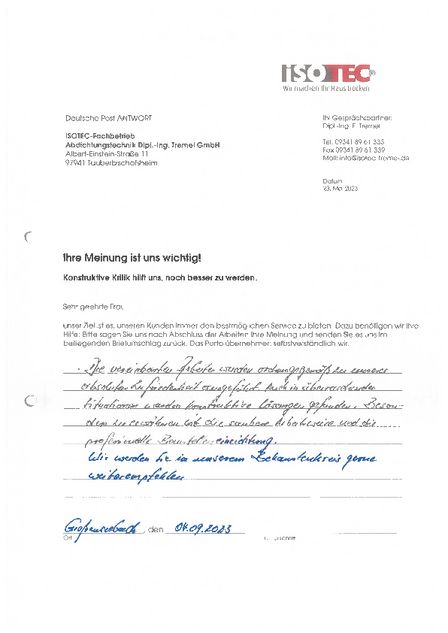 ISOTEC®
Wir machen Ihr Haus trocken
Deutsche Post ANTWORT
ISOTEC-Fachbetrieb
Abdichtungstechnik Dipl.-Ing. Tremel GmbH
Albert-Einstein-Straße 11
97941 Tauberbischofsheim
Ihr Gesprächspartner:
Dipl.-Ing. E. Tremel
Tel. 09341 89 61 335
Fax 09341 89 61 339
Mail: info@isotec-tremel.de
Datum
23. Mai 2023
Ihre Meinung ist uns wichtig!
Konstruktive Kritik hilft uns, noch besser zu werden.
Sehr geehrte Frau,
unser Ziel ist es, unseren Kunden immer den bestmöglichen Service zu bieten. Dazu benötigen wir Ihre
Hilfe: Bitte sagen Sie uns nach Abschluss der Arbeiten Ihre Meinung und senden Sie es uns im
beiliegenden Briefumschlag zurück. Das Porto übernehmen selbstverständlich wir.
Die vereinbarten Arbeiten wurden ordnungsgemäß zu unserer
absoluten Zufriedenheit ausgeführt. Auch in überraschenden
Situationen wurden konstruktive Lösungen gefunden. Beson-
ders zu erwähnen ist die saubere Arbeitsweise und die
professionelle Baustelleneinrichtung.
Wir werden Sie in unserem Bekanntenkreis gerne
weiterempfehlen
den 04.09.2023
Ort